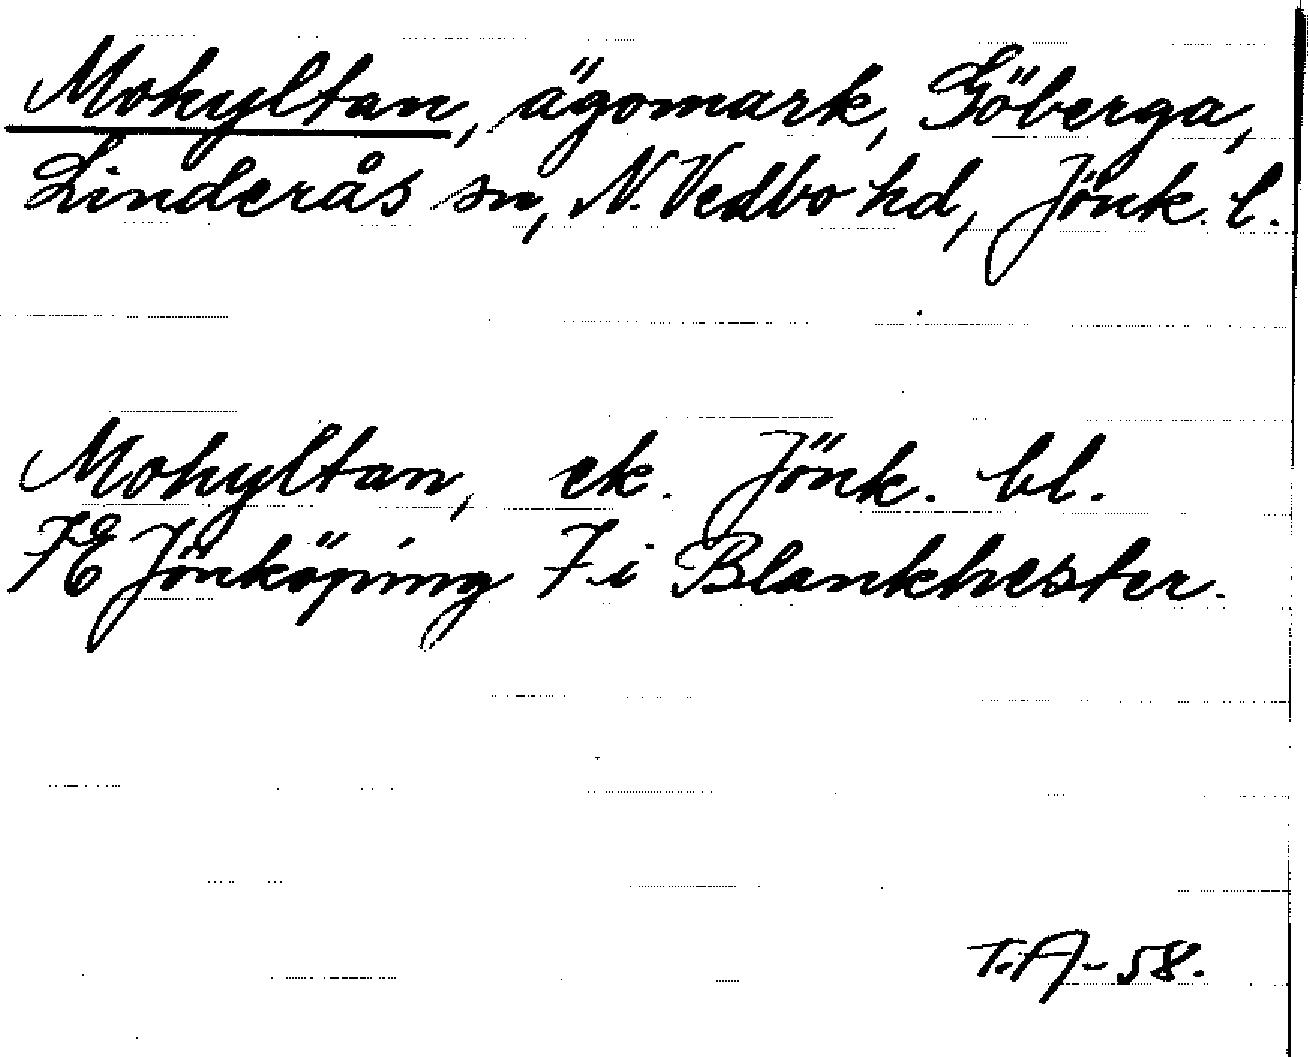 Mokyltan, ägomark, Göberga,
Linderås sn, N. Vedbo hd, Jönk. l.
Mokyltan, ek. Jönk. bl.
7E Jönköping 7 i Blankhester.
T.A-58.